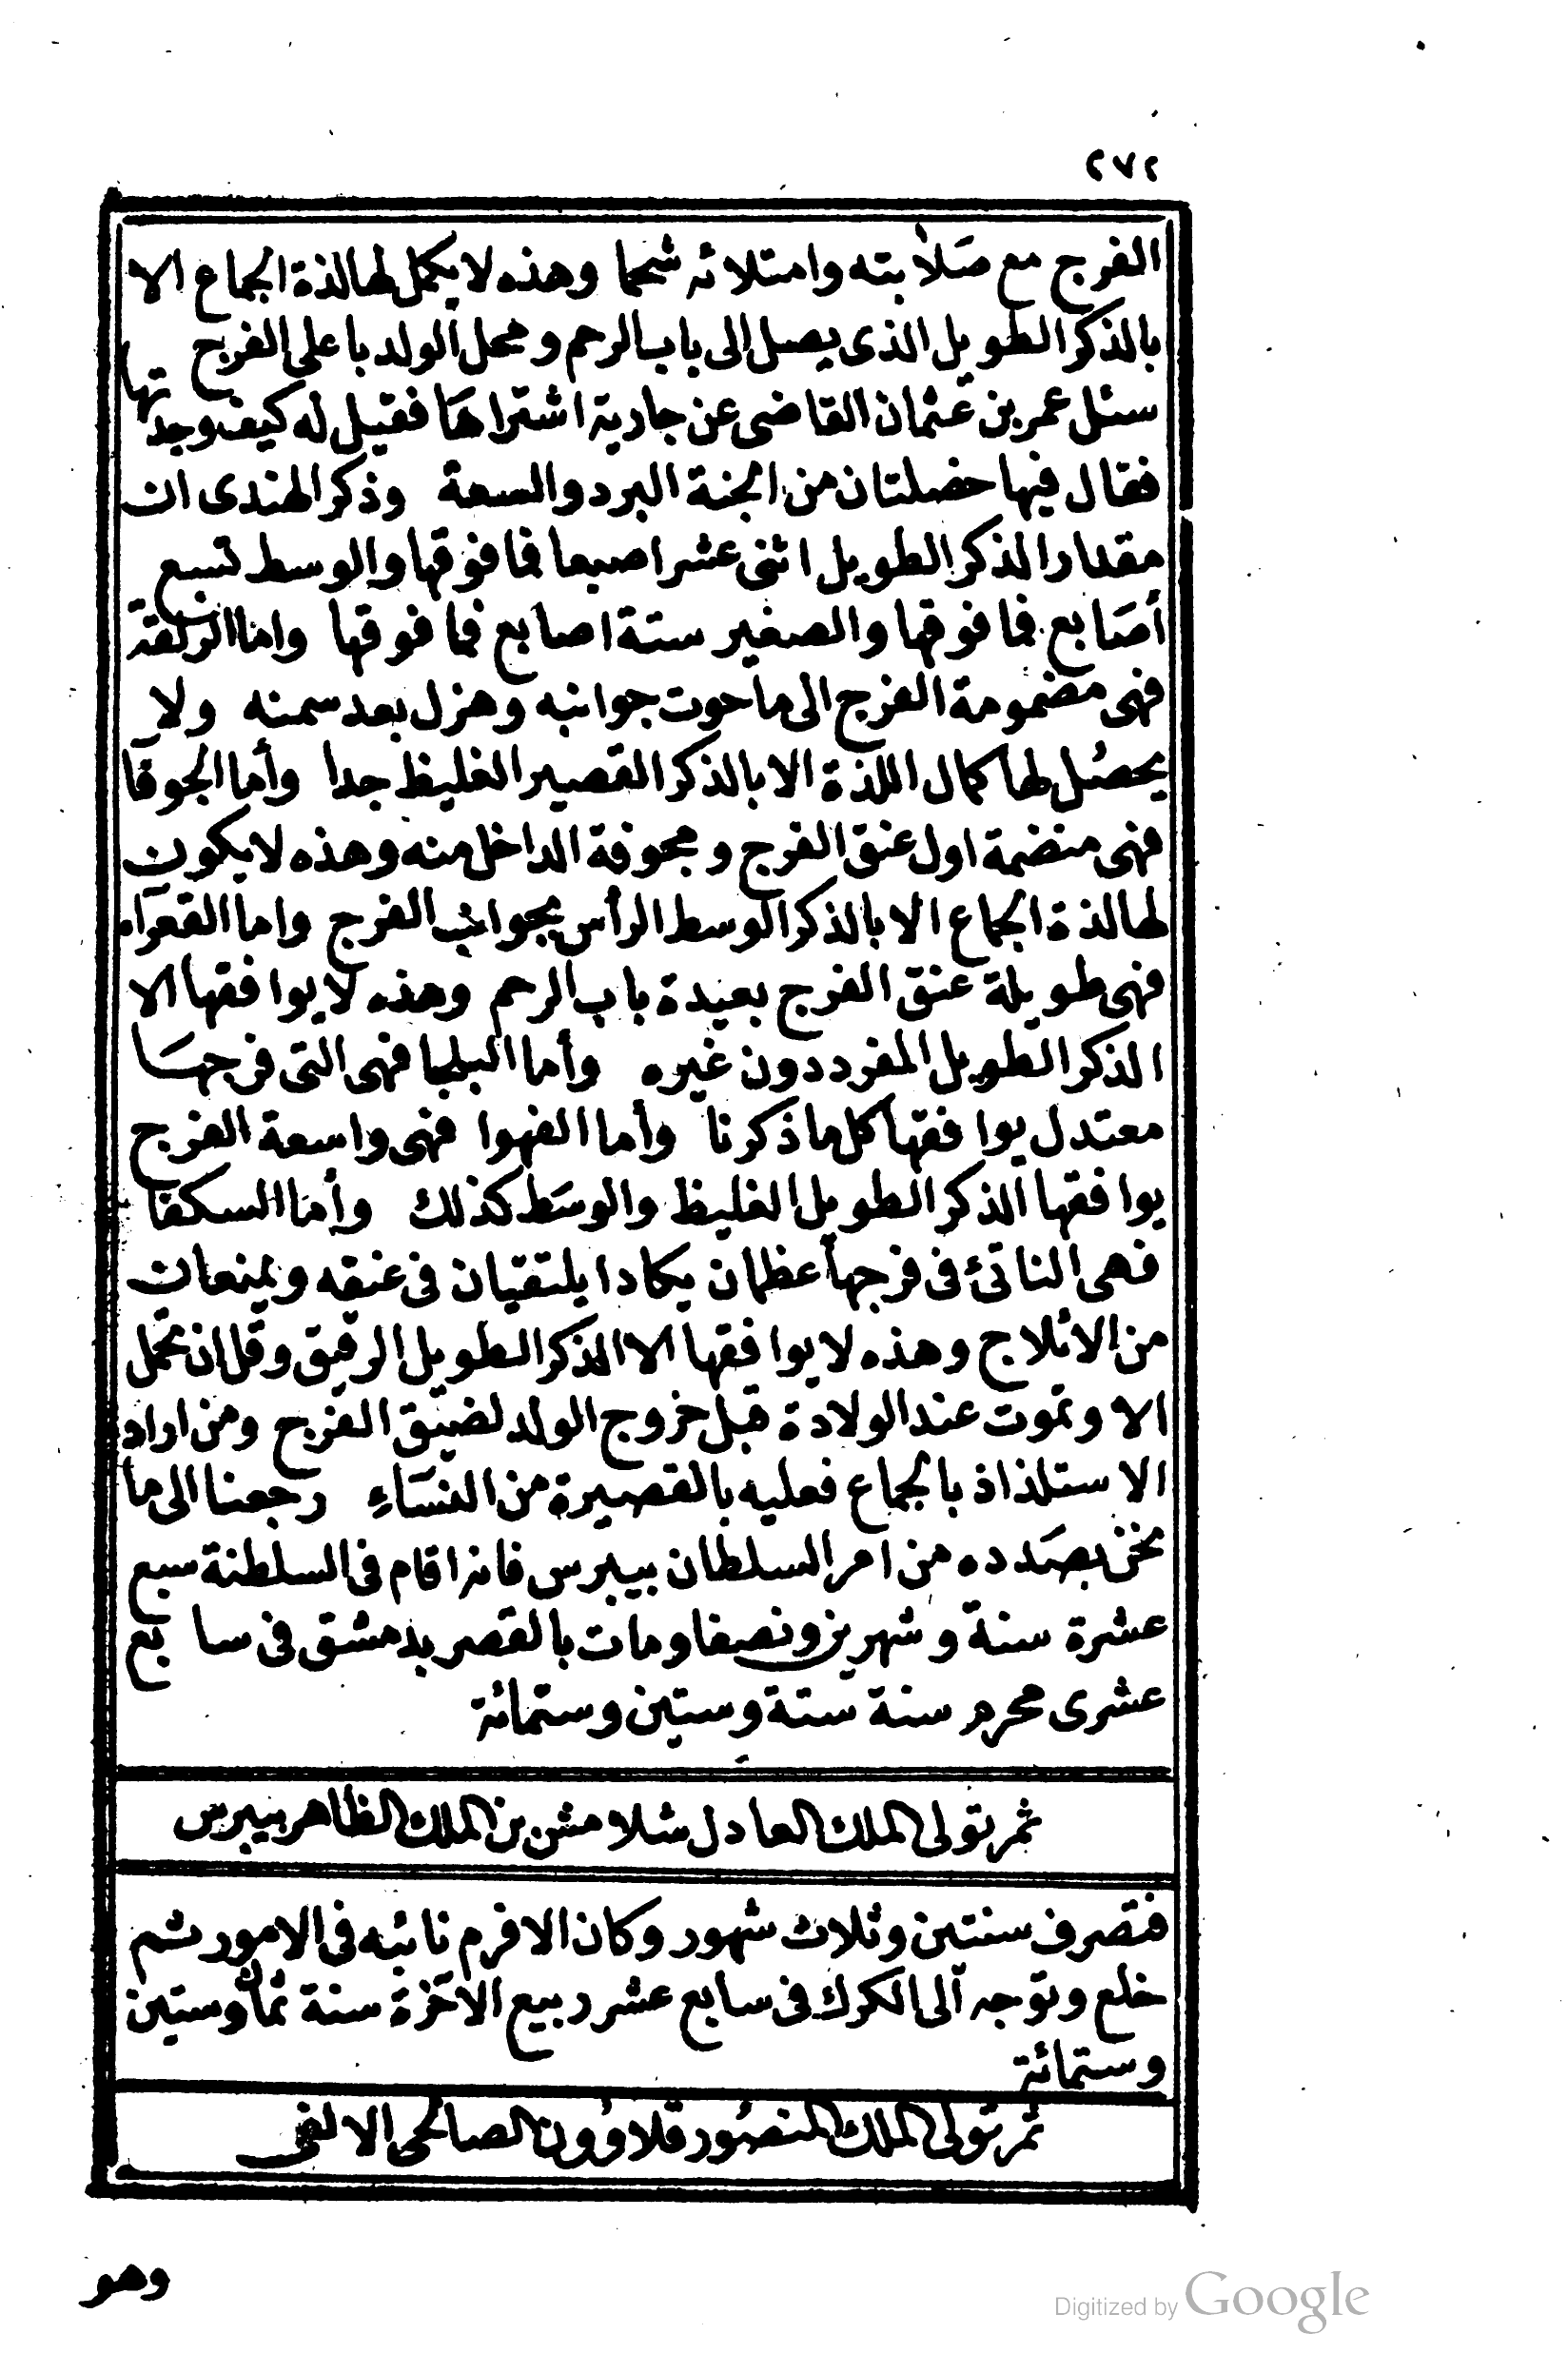 ٢٧٢
الفرج مع صَلابته وامتلائه شحما وهذه لا يكمل لها لذة الجماع الا
بالذكر الطويل الذى يصل الى باب الرحم ومحل الولد باعلى الفرج
سئل عمر بن عثمان القاضى عن جارية اشتراهَا فقيل له كيف وجدتها
فقال فيها خصلتان من الجنة البرد والسعة وذكر الهندى ان
مقدار الذكر الطويل اثنى عشر اصبعا فما فوقها والوسط تسع
أصَابع فما فوقها والصغير ستة اصابع فما فوقها واما الزلقة
فهى مضمومة الفرج الى ما حوت جوانبه وهزل بعد سمنه ولا
يحصُل لها كمال اللذة الا بالذكر القصير الغليظ جدا وأما الجوفا
فهى منضمة اول عنق الفرج ومجوفة الداخل منه وهذه لا يكون
لها لذة الجماع الا بالذكر الوسط الرأس بجوانب الفرج واما القعرَاء
فهى طويلة عنق الفرج بعيدة باب الرحم وهذه لا يوافقها الا
الذكر الطويل المفرد دون غيره وأما البلها فهى التى فرجهَا
معتدل يوافقها كل ما ذكرنا وأما الفهوا فهى واسعة الفرج
يوافقها الذكر الطويل الغليظ والوسَط كذلك وأما السكفا
فهى الناتئ فى فرجها عظمان يكادا يلتقيان فى عنقه ويمنعان
من الائلاج وهذه لا يوافقها الا الذكر الطويل الرقيق وقل ان تحمل
الا وتموت عند الولادة قبل خروج الولد لضيق الفرج ومن اراد
الاستلذاذ بالجماع فعليه بالقصيرة من النسَاءِ رجعنا الى ما
نحن بصَدده من امر السلطان بيبرس فانه اقام فى السلطنة سبع
عشرة سنة وشهرين ونصفا ومات بالقصر بدمشق فى سابع
عشرى محرم سنة ستة وستين وستمائة
ثم تولى الملك العادل شلامش بن الملك الظاهر بيبرس
فتصرف سنتين وثلاث شهور وكان الافرم نائبه فى الامور ثم
خلع وتوجه الى الكرك فى سابع عشر ربيع الآخرة سنة ثمان وستين
وستمائة
ثم تولى الملك المنصُور قلاوُون الصالحى الالفى
وهو
Digitized by Google